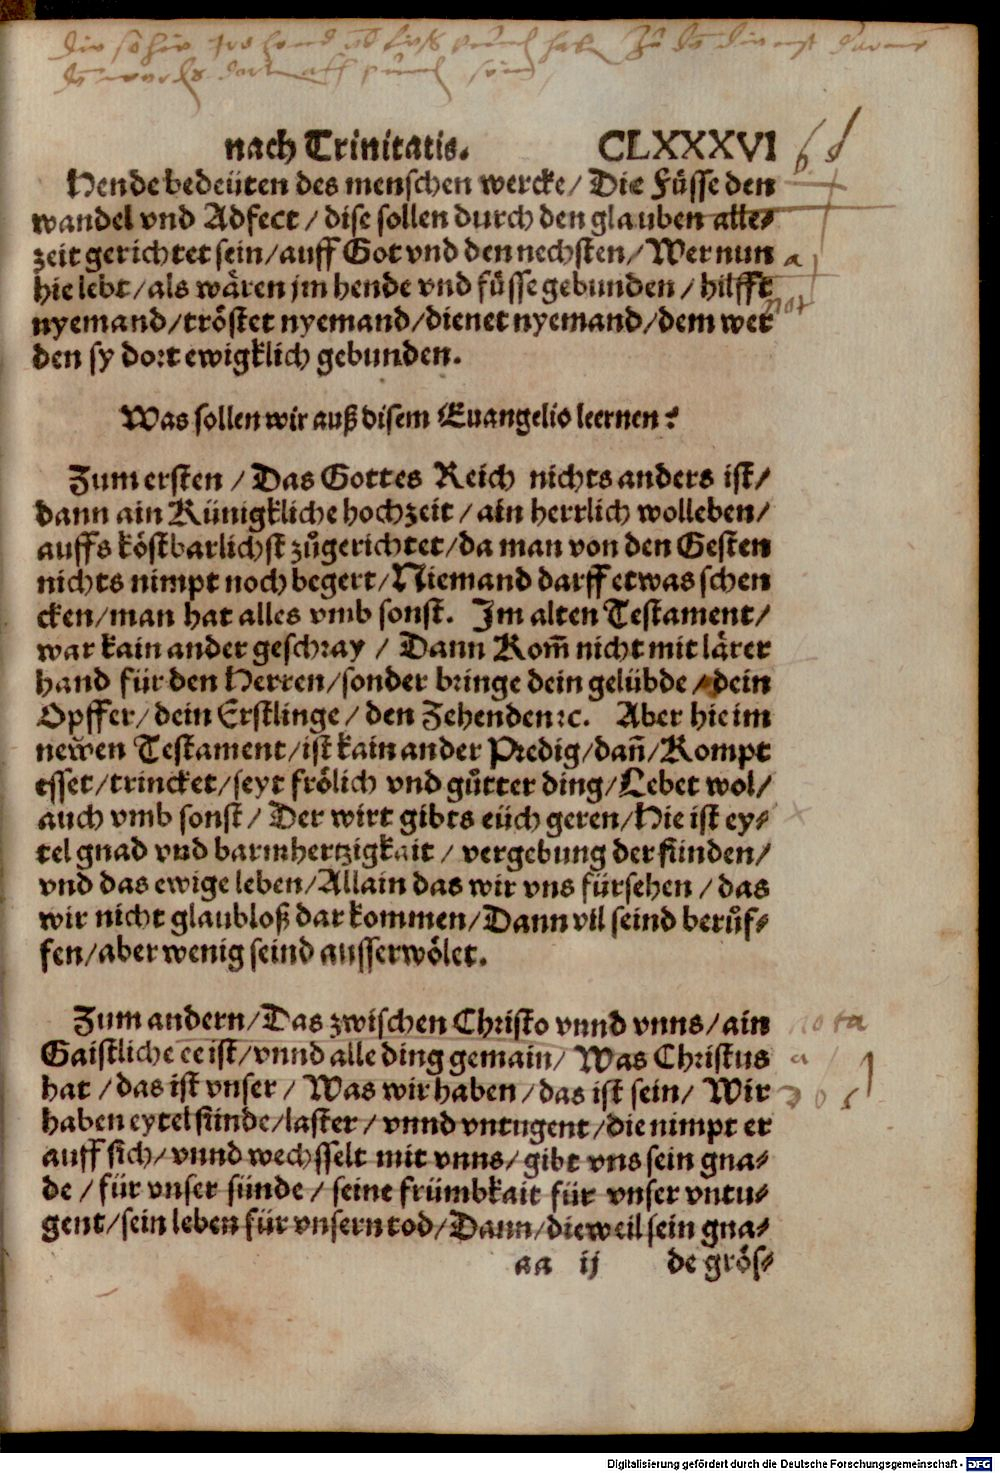 nach Trinitatis. CLXXXVI
Hende bedeüten des menschen wercke/ Die Füsse den
wandel vnd Adfect/ dise sollen durch den glauben alle⸗
zeit gerichtet sein/auff Got vnd den nechsten/ Wer nun
hie lebt/als wären jm hende vnd füsse gebunden/ hilfft
nyemand/tröstet nyemand/dienet nyemand/dem wer
den sy dort ewigklich gebunden.
Was sollen wir auß disem Euangelio leernen?
Zum ersten/ Das Gottes Reich nichts anders ist/
dann ain Künigkliche hochzeit/ ain herrlich wolleben/
auffs köstbarlichst zůgerichtet/da man von den Gesten
nichts nimpt noch begert/Niemand darff etwas schen
cken/man hat alles vmb sonst. Im alten Testament/
war kain ander geschray/ Dann Kom̄ nicht mit lärer
hand für den Herren/sonder bringe dein gelübde/dein
Opffer/dein Erstlinge/ den Zehenden ꝛc. Aber hie im
newen Testament/ist kain ander Predig/dañ/Kompt
esset/trincket/seyt frölich vnd gůtter ding/Lebet wol/
auch vmb sonst/ Der wirt gibts eüch geren/Hie ist ey⸗
tel gnad vnd barmhertzigkait/ vergebung der sünden/
vnd das ewige leben/Allain das wir vns fürsehen/das
wir nicht glaubloß dar kommen/Dann vil seind berůf⸗
fen/aber wenig seind ausserwölet.
Zum andern/Das zwischen Christo vnnd vnns/ain nota
Gaistliche ee ist/vnnd alle ding gemain/ Was Christus a
hat/das ist vnser/ Was wir haben/das ist sein/ Wir
haben eytel sünde/laster/vnnd vntugent/die nimpt er
auff sich/vnnd wechsselt mit vnns/gibt vns sein gna⸗
de/für vnser sünde/seine frümbkait für vnser vntu⸗
gent/sein leben für vnsern tod/Dann/dieweil sein gna⸗
aa ij de grös⸗
Digitalisierung gefördert durch die Deutsche Forschungsgemeinschaft - DFG